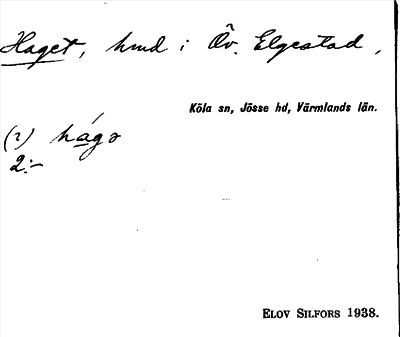 Haget, hmd i Öv. Elgestad.
Köla sn, Jösse hd, Värmlands län.
(2) hágə
2:-
ELOV SILFORS 1938.